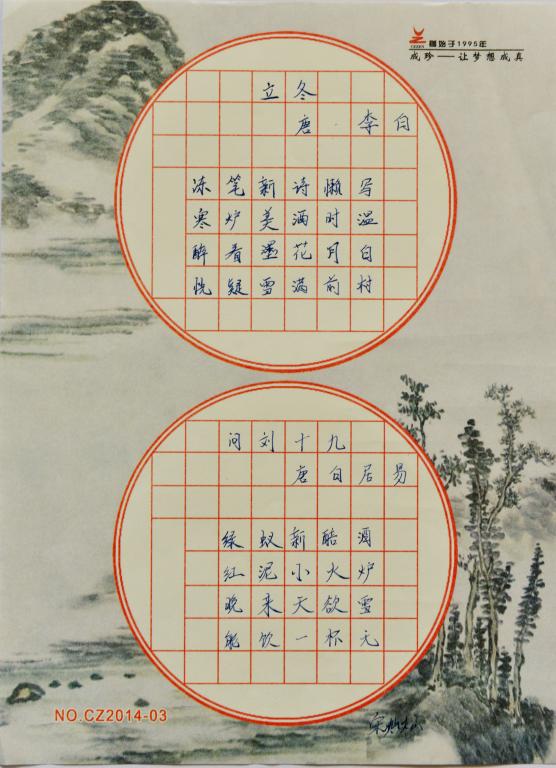 CZZEN 创始于1995年
成珍——让梦想成真
立冬
唐·李白
冻笔新诗懒写
寒炉美酒时温
醉看墨花月白
恍疑雪满前村
问刘十九
唐白居易
绿蚁新醅酒
红泥小火炉
晚来天欲雪
能饮一杯无
NO.CZ2014-03